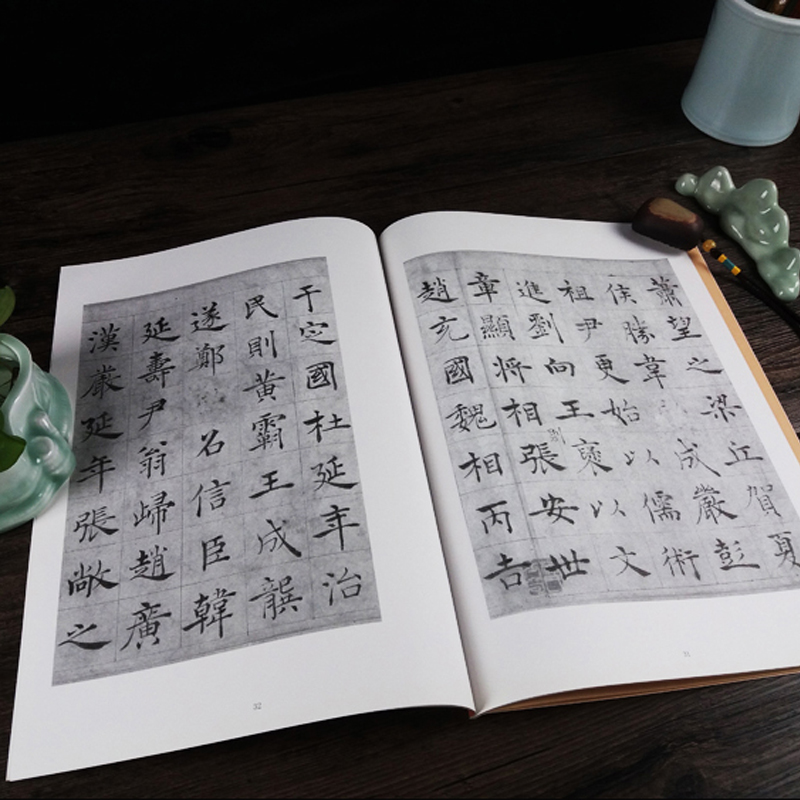 蕭望之梁丘賀夏
侯勝韋成嚴彭
祖尹更始以儒術
進劉向王襃以文
章顯將相張安世
趙充國魏相丙吉
于定國杜延年治
民則黃霸王成龔
遂鄭召信臣韓
延壽尹翁歸趙廣
漢嚴延年張敞之
32